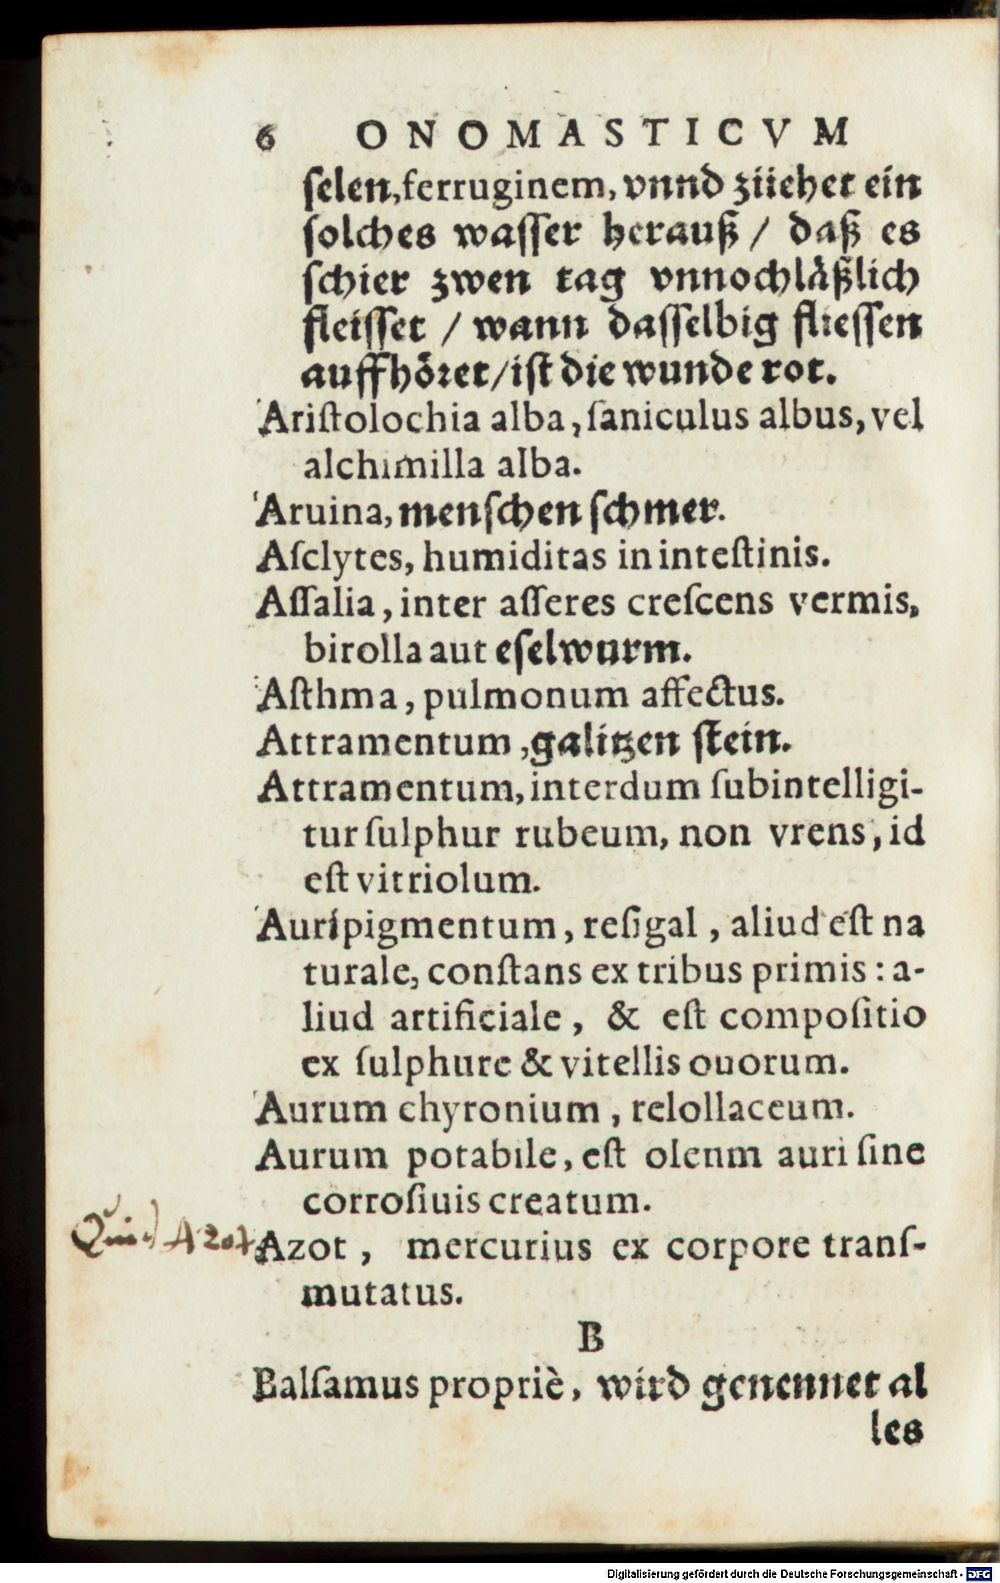 6 ONOMASTICVM
ſelen, ferruginem, vnnd züehet ein
ſolches waſſer herauß / daß es
ſchier zwen tag vnnochläßlich
fleiſſet / wann daſſelbig flieſſen
auffhöret / iſt die wunde rot.
Ariſtolochia alba, ſaniculus albus, vel
alchimilla alba.
Aruina, menſchen ſchmer.
Aſclytes, humiditas in inteſtinis.
Aſſalia, inter aſſeres creſcens vermis,
birolla aut eſelwurm.
Aſthma, pulmonum affectus.
Attramentum, galitzen ſtein.
Attramentum, interdum ſubintelligi-
tur ſulphur rubeum, non vrens, id
eſt vitriolum.
Auripigmentum, reſigal, aliud eſt na
turale, conſtans ex tribus primis: a-
liud artificiale, & eſt compoſitio
ex ſulphure & vitellis ouorum.
Aurum chyronium, relollaceum.
Aurum potabile, eſt olenm auri ſine
corroſiuis creatum.
Quid Azot
Azot, mercurius ex corpore tranſ-
mutatus.
B
Balſamus propriè, wird genennet al
les
Digitalisierung gefördert durch die Deutsche Forschungsgemeinschaft - DFG